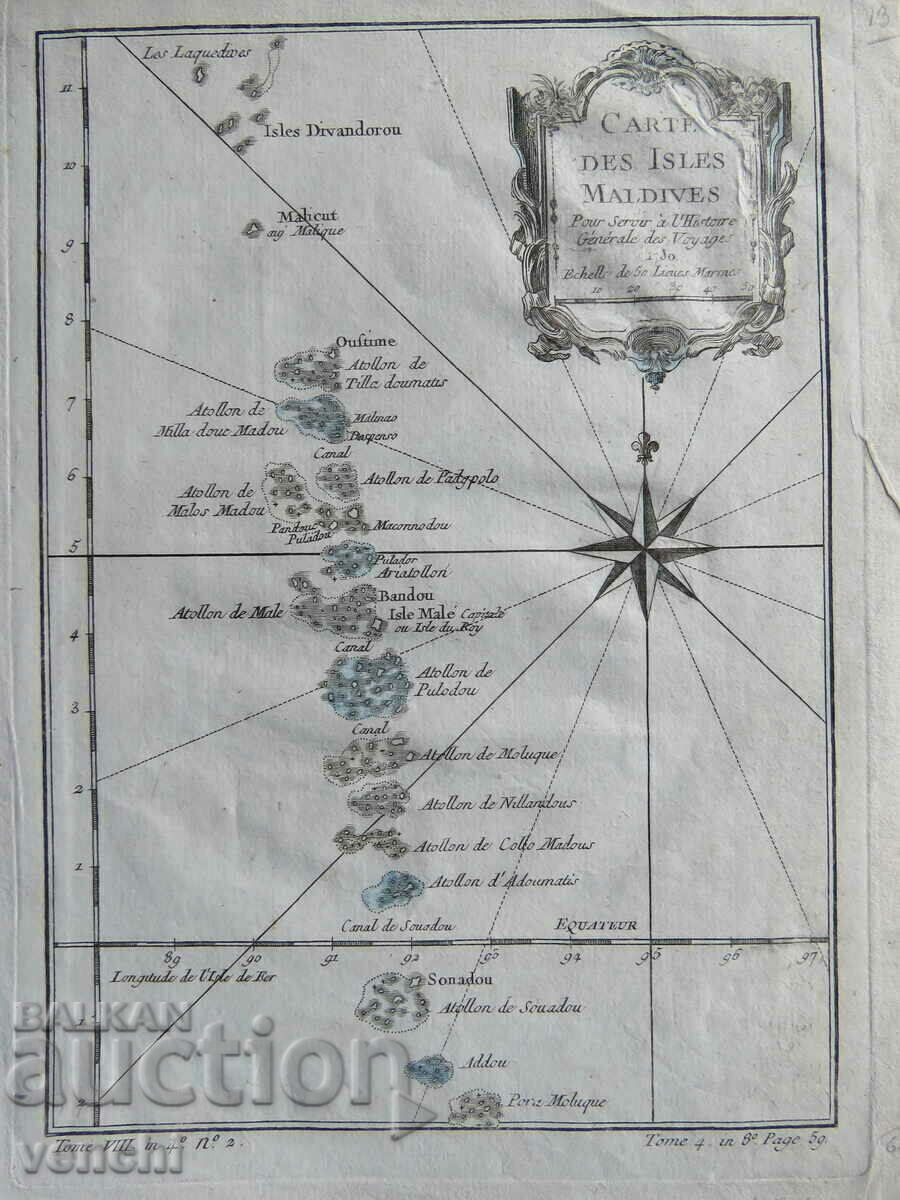 13
Les Laquedives
Isles Divandorou
Malicut
auj Malique
CARTE
DES ISLES
MALDIVES
Pour Servir à l'Histoire
Générale des Voyages
1750
Echelle de 50 Lieues Marines
10 20 30 40 50
11
10
9
8
7
6
5
4
3
2
1
1
2
Oustime
Atollon de
Tilla doumatis
Atollon de
Milla doue Madou
Malmao
Daspenso
Canal
Atollon de Padypolo
Atollon de
Malos Madou
Pandoue
Puladou
Maconnodou
Pulador
Ariatollon
Bandou
Atollon de Male
Isle Malé Capitale
ou Isle du Roy
Canal
Atollon de
Pulodou
Canal
Atollon de Moluque
Atollon de Nillandous
Atollon de Collo Madous
Atollon d'Adoumatis
Canal de Souadou
EQUATEUR
89 90 91 92 93 94 95 96 97
Longitude de l'Isle de Fer
Sonadou
Atollon de Souadou
Addou
Pora Moluque
Tome VIII in 4º Nº 2.
Tome 4. in 8º Page 59.
BALKAN
auction
veneni